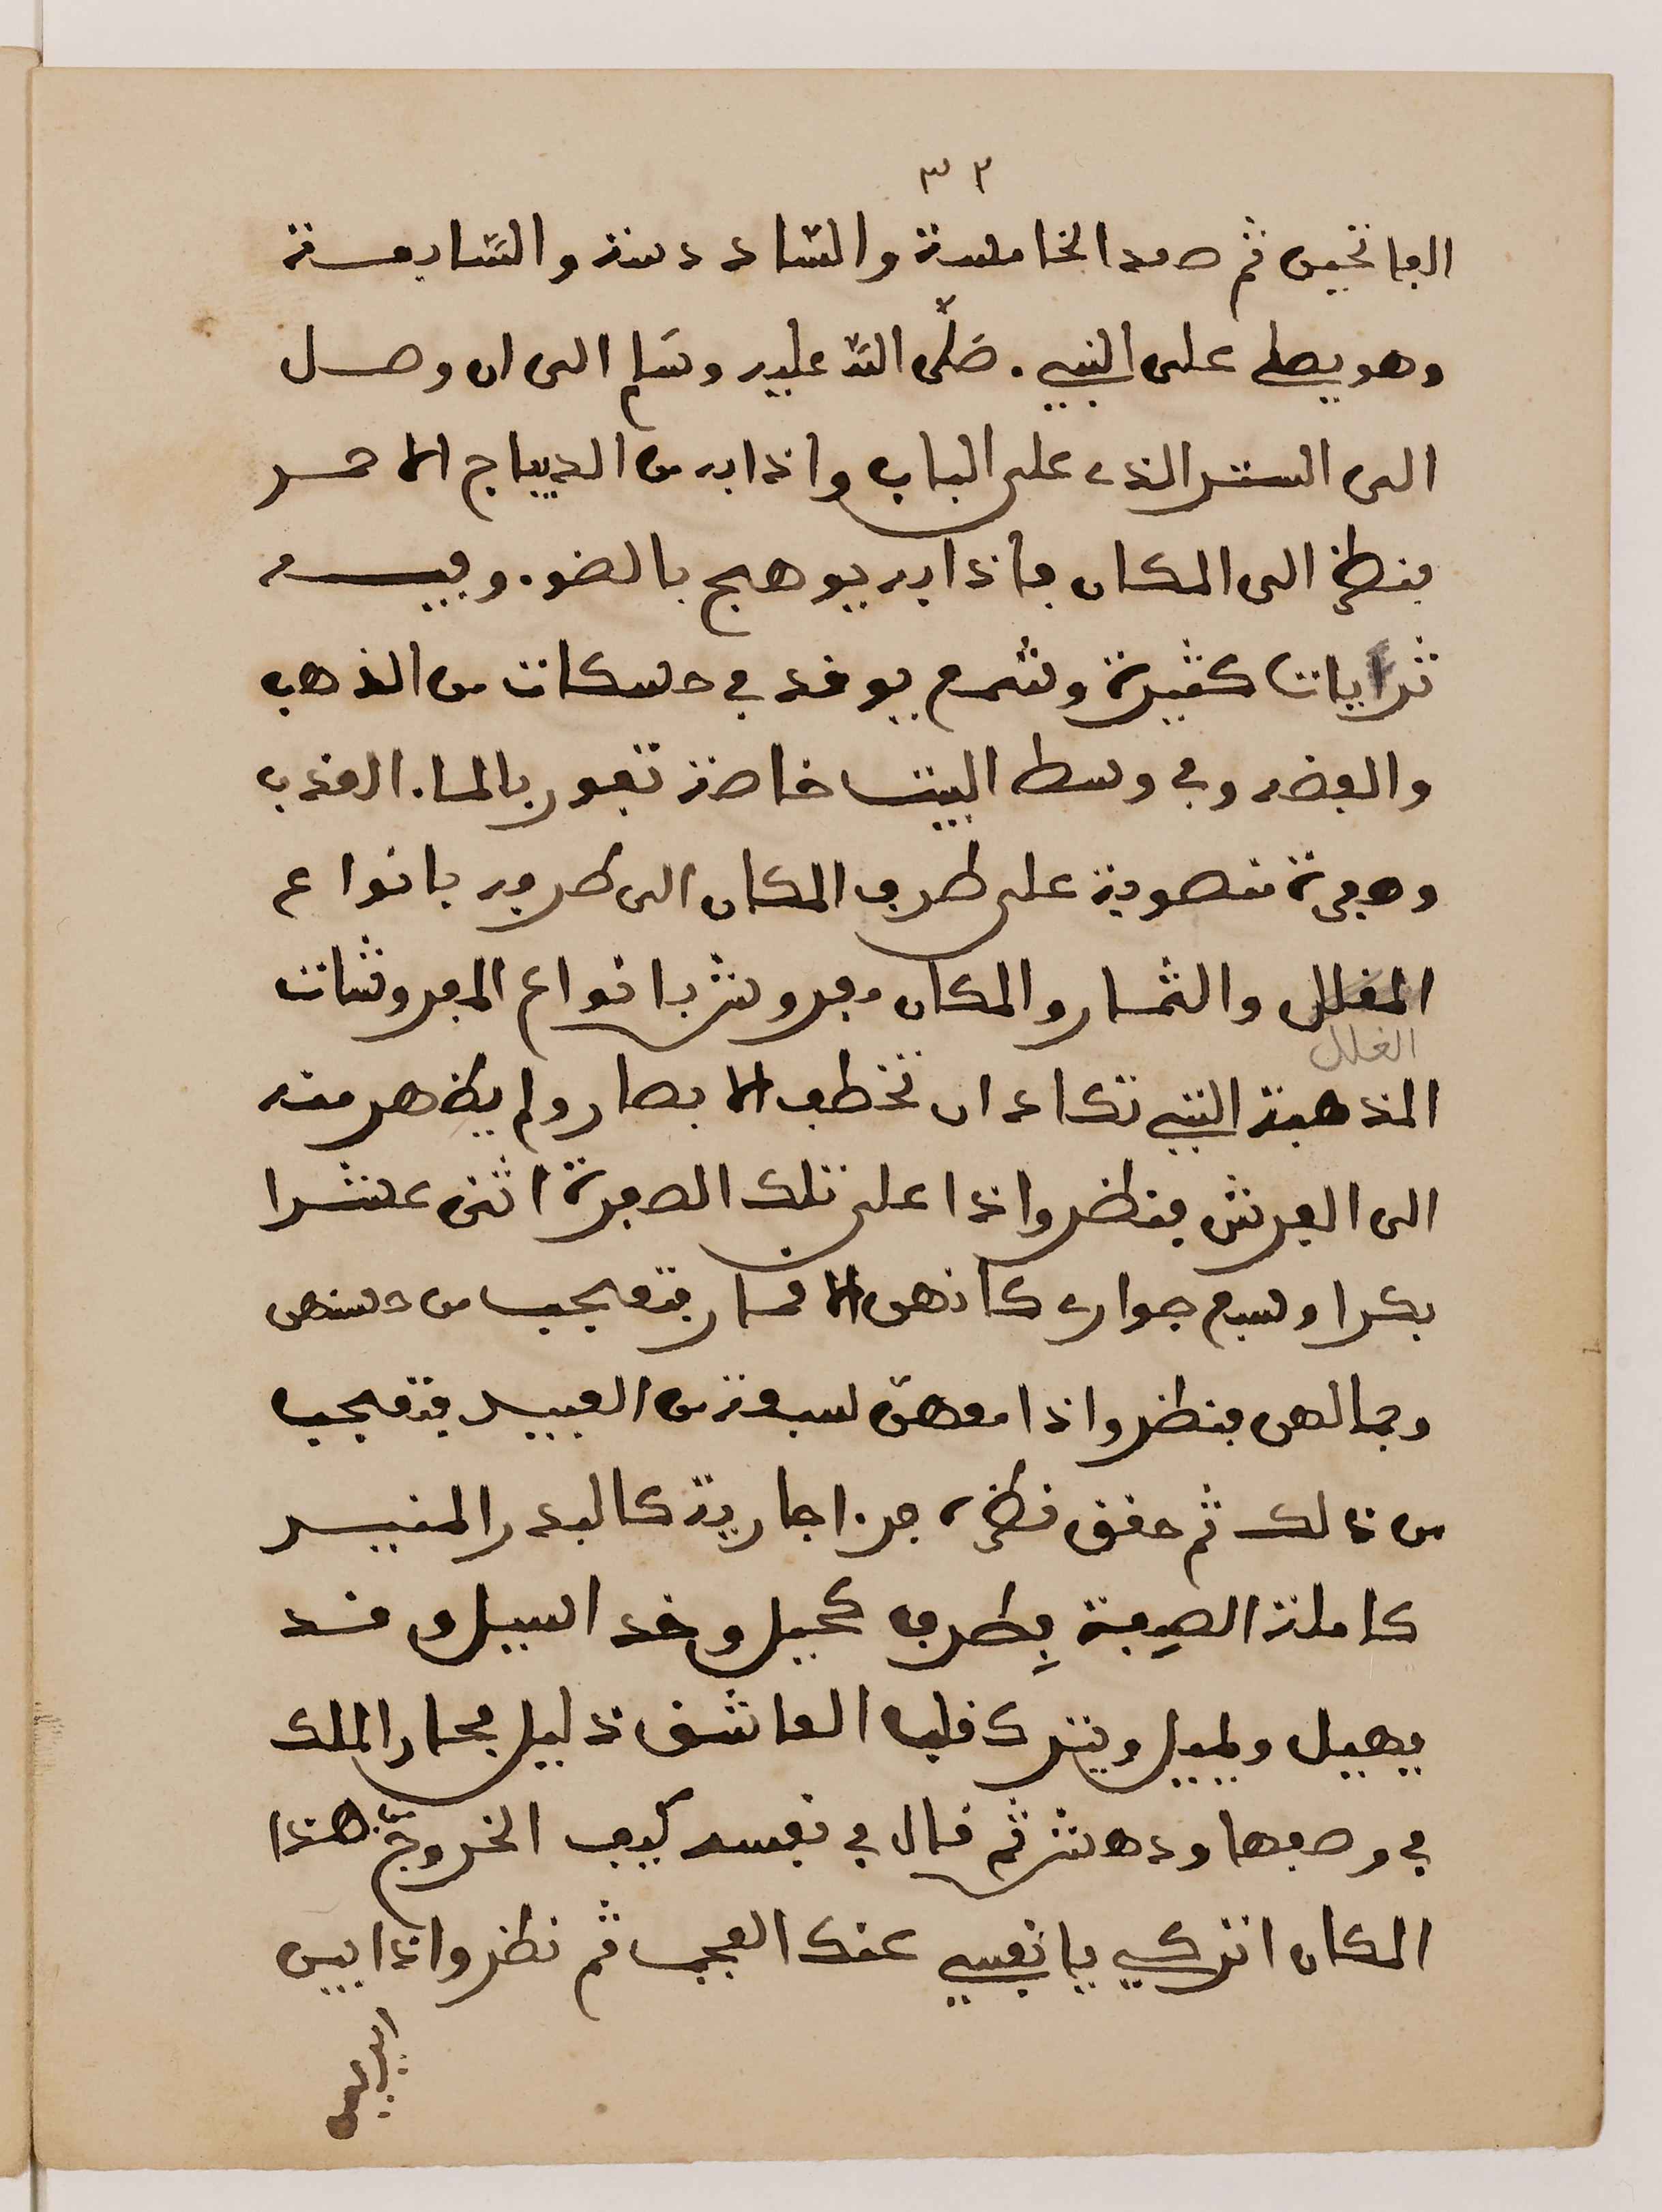 ٣٢
الفاتحين ثم صعد الخامسة والسّادسة والسّابعة
وهو يصلي على النبي. صَلَّى اللّه عليه وسَلم الى ان وصل
الى الستر الذي على الباب واذا به من الديباج الاحمر
فنظر الى المكان فاذا به يوهج بالضو. وفيه
ثرايات كثيرة وشمع يوقد في حسكات من الذهب
والفضه وفي وسط البيت خاصة تفور بالما. العذب
وصفرة منصوبة على طرف المكان الى طرفه بانواع
المغلل والثمار والمكان مفروش بانواع المفروشات
الغلل
المذهبة التي تكاد ان تخطف الابصار ولم يظهر منه
الى الفرش فنظر واذا على تلك الصفرة اثنى عشرا
بكرا وسبع جوار كانهن الاقمار فتعجب من حسنهن
وجمالهن فنظر واذا معهنّ سبعة من العبيد فتعجب
من ذالك ثم حقق نظره فرءا جارية كالبدر المنير
كاملة الصِفة بِطرف كحيل وخد اسيل وقد
يهيل ويميل ويترك قلب العاشق ذليل فحار الملك
في وصفها ودهش ثم قال في نفسه كيف الخروج من هذا
المكان اتركي يا نفسي عنك العجب ثم نظر واذا بين